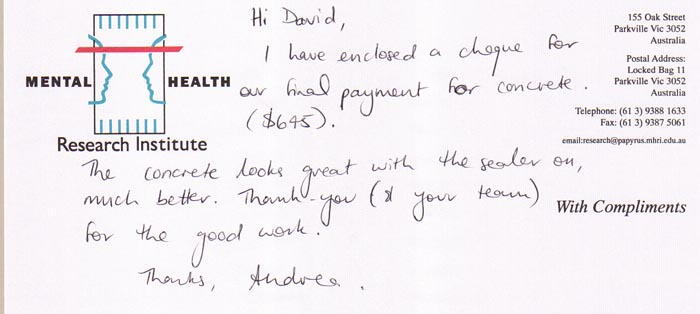 Hi David,
I have enclosed a cheque for
our final payment for concrete.
($645).
The concrete looks great with the sealer on,
much better. Thank-you (& your team)
for the good work.
Thanks, Andrea.
MENTAL HEALTH
Research Institute
155 Oak Street
Parkville Vic 3052
Australia
Postal Address:
Locked Bag 11
Parkville Vic 3052
Australia
Telephone: (61 3) 9388 1633
Fax: (61 3) 9387 5061
email:research@papyrus.mhri.edu.au
With Compliments